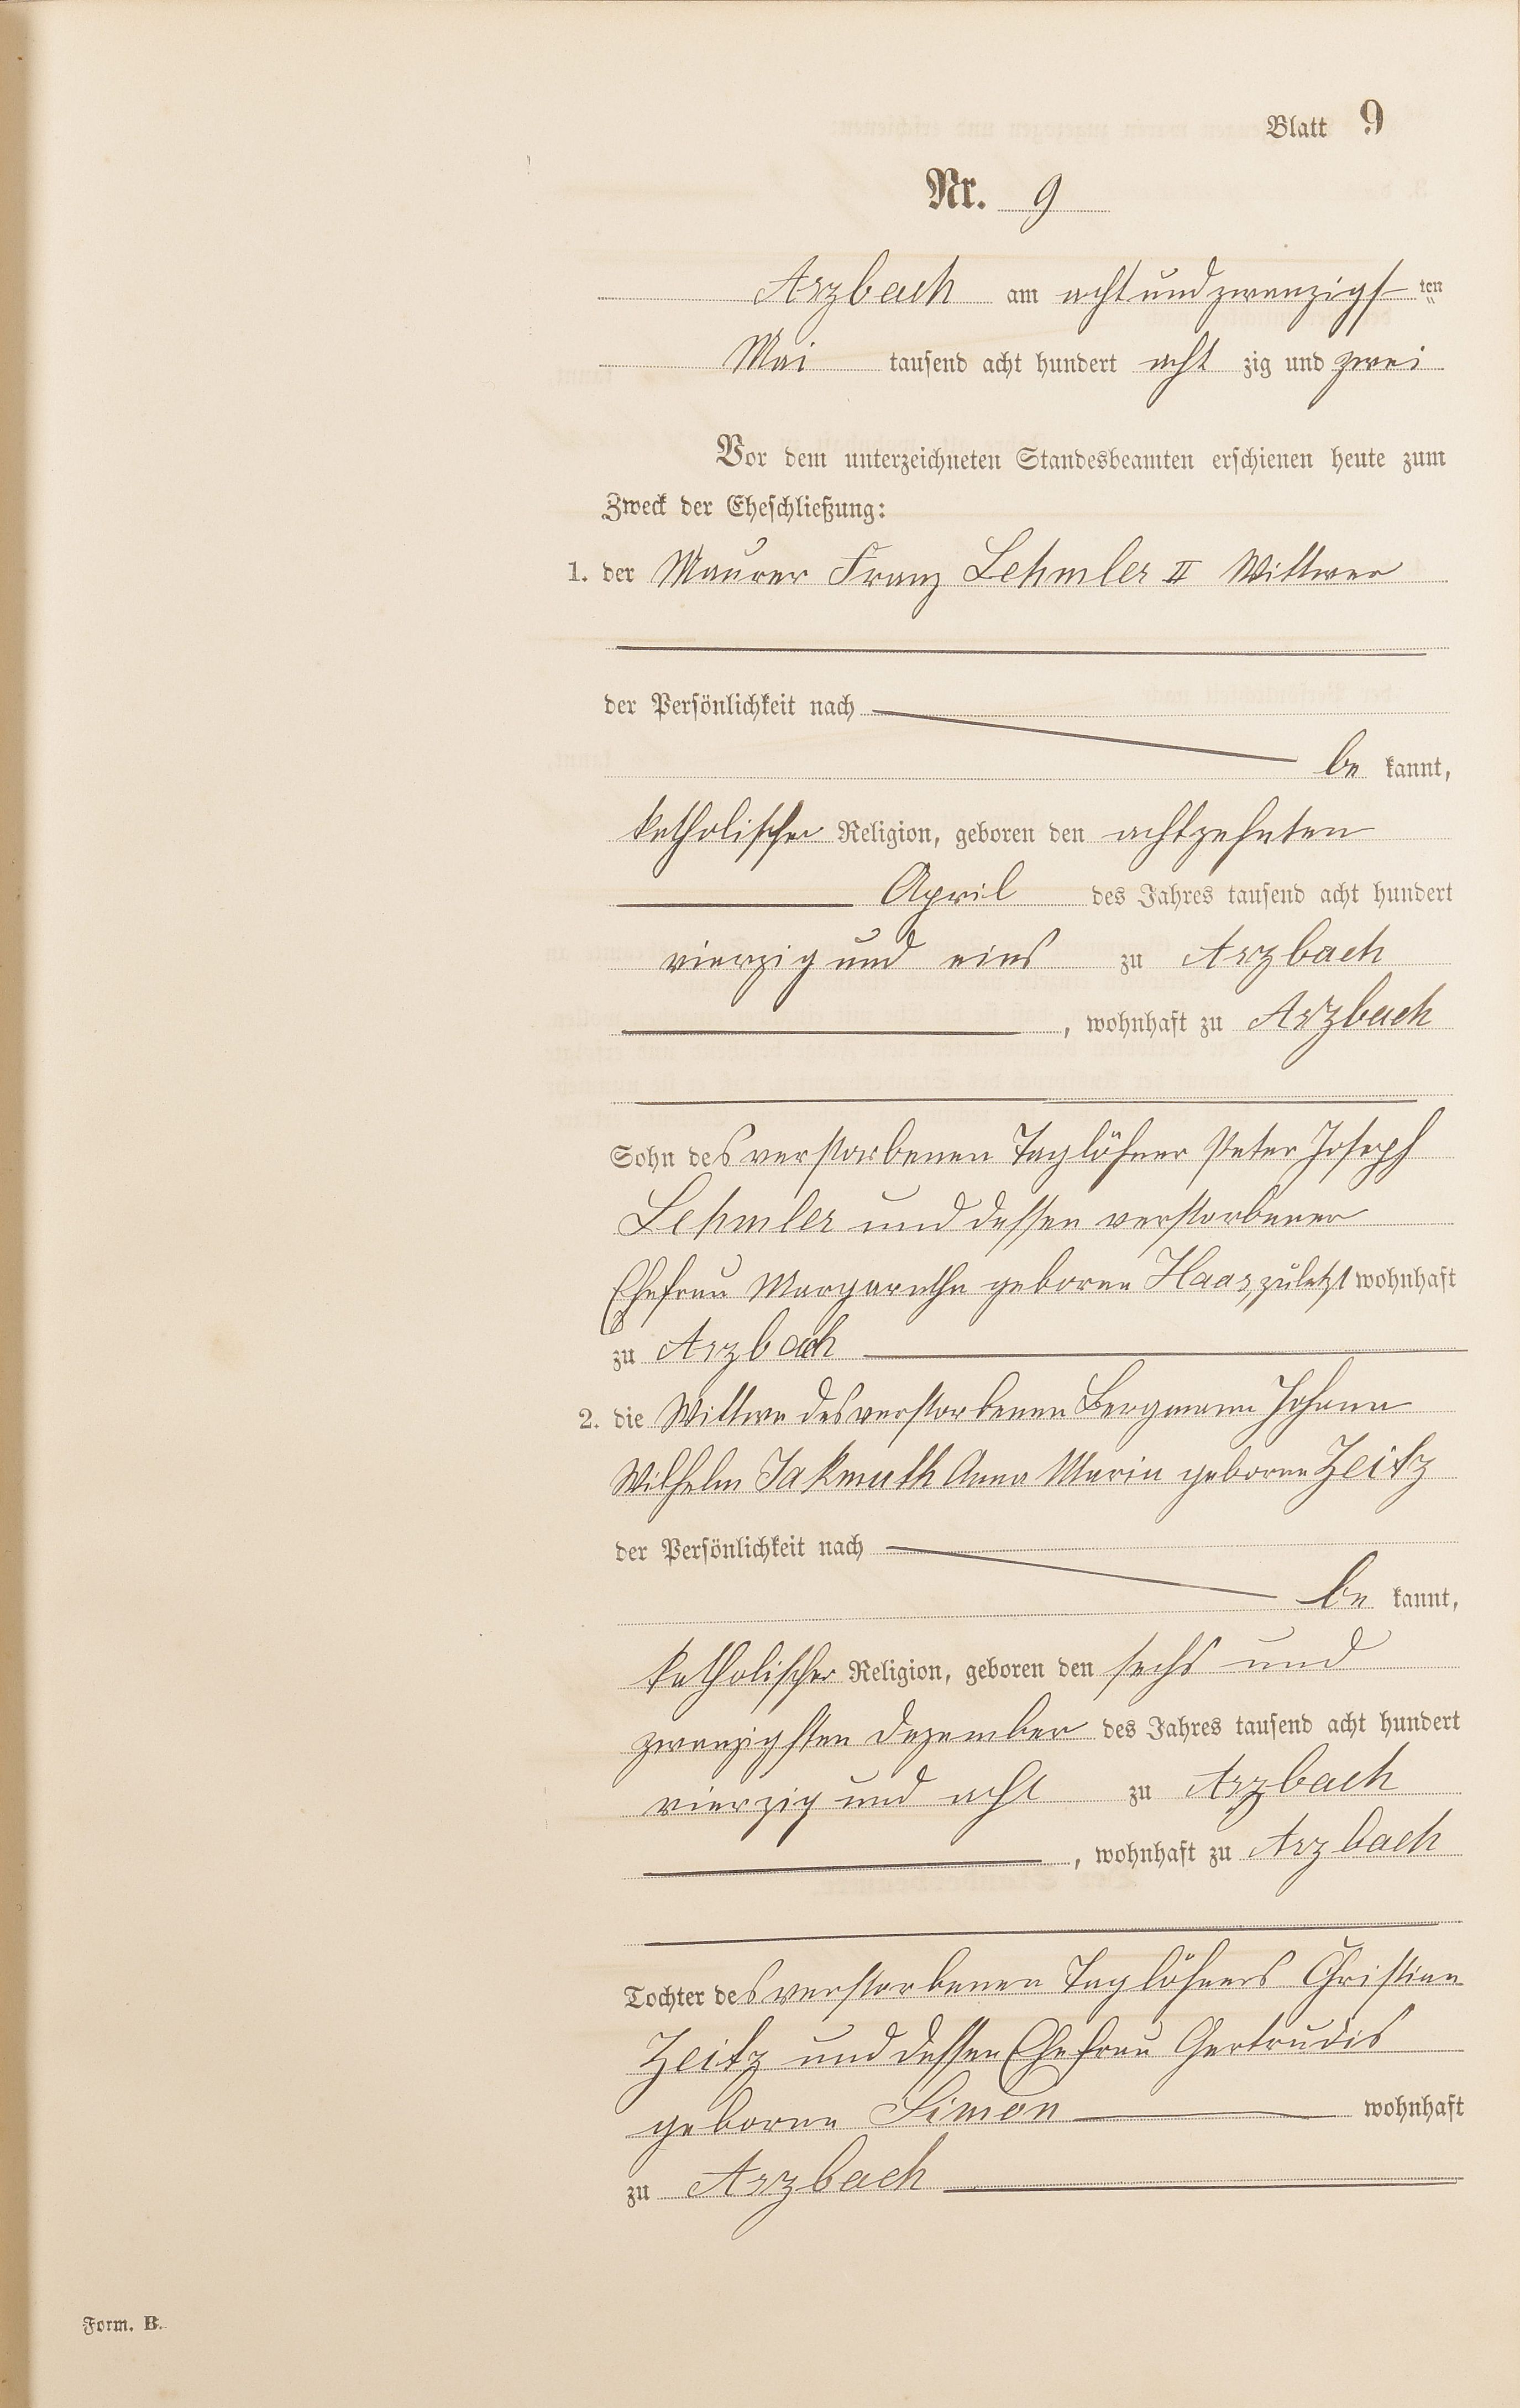 Blatt 9
Nr. 9
Arzbach am achtundzwanzigsten
Mai tausend acht hundert achtzig und zwei
Vor dem unterzeichneten Standesbeamten erschienen heute zum
Zweck der Eheschließung:
1. der Maurer Franz Lehmler II Wittwer
der Persönlichkeit nach
bekannt,
katholischer Religion, geboren den achtzehnten
April des Jahres tausend acht hundert
vierzig und eins zu Arzbach
, wohnhaft zu Arzbach
Sohn des verstorbenen Taglöhner Peter Joseph
Lehmler und dessen verstorbener
Ehefrau Margarethe geborne Haas, zuletzt wohnhaft
zu Arzbach
2. die Wittwe des verstorbenen Bergmann Johann
Wilhelm Jakmuth Anna Maria geborne Zeitz
der Persönlichkeit nach
bekannt,
katholischer Religion, geboren den sechs und
zwanzigsten Dezember des Jahres tausend acht hundert
vierzig und acht zu Arzbach
, wohnhaft zu Arzbach
Tochter des verstorbenen Taglöhners Christian
Zeitz und dessen Ehefrau Gertrudis
geborne Simon wohnhaft
zu Arzbach
Form. B.